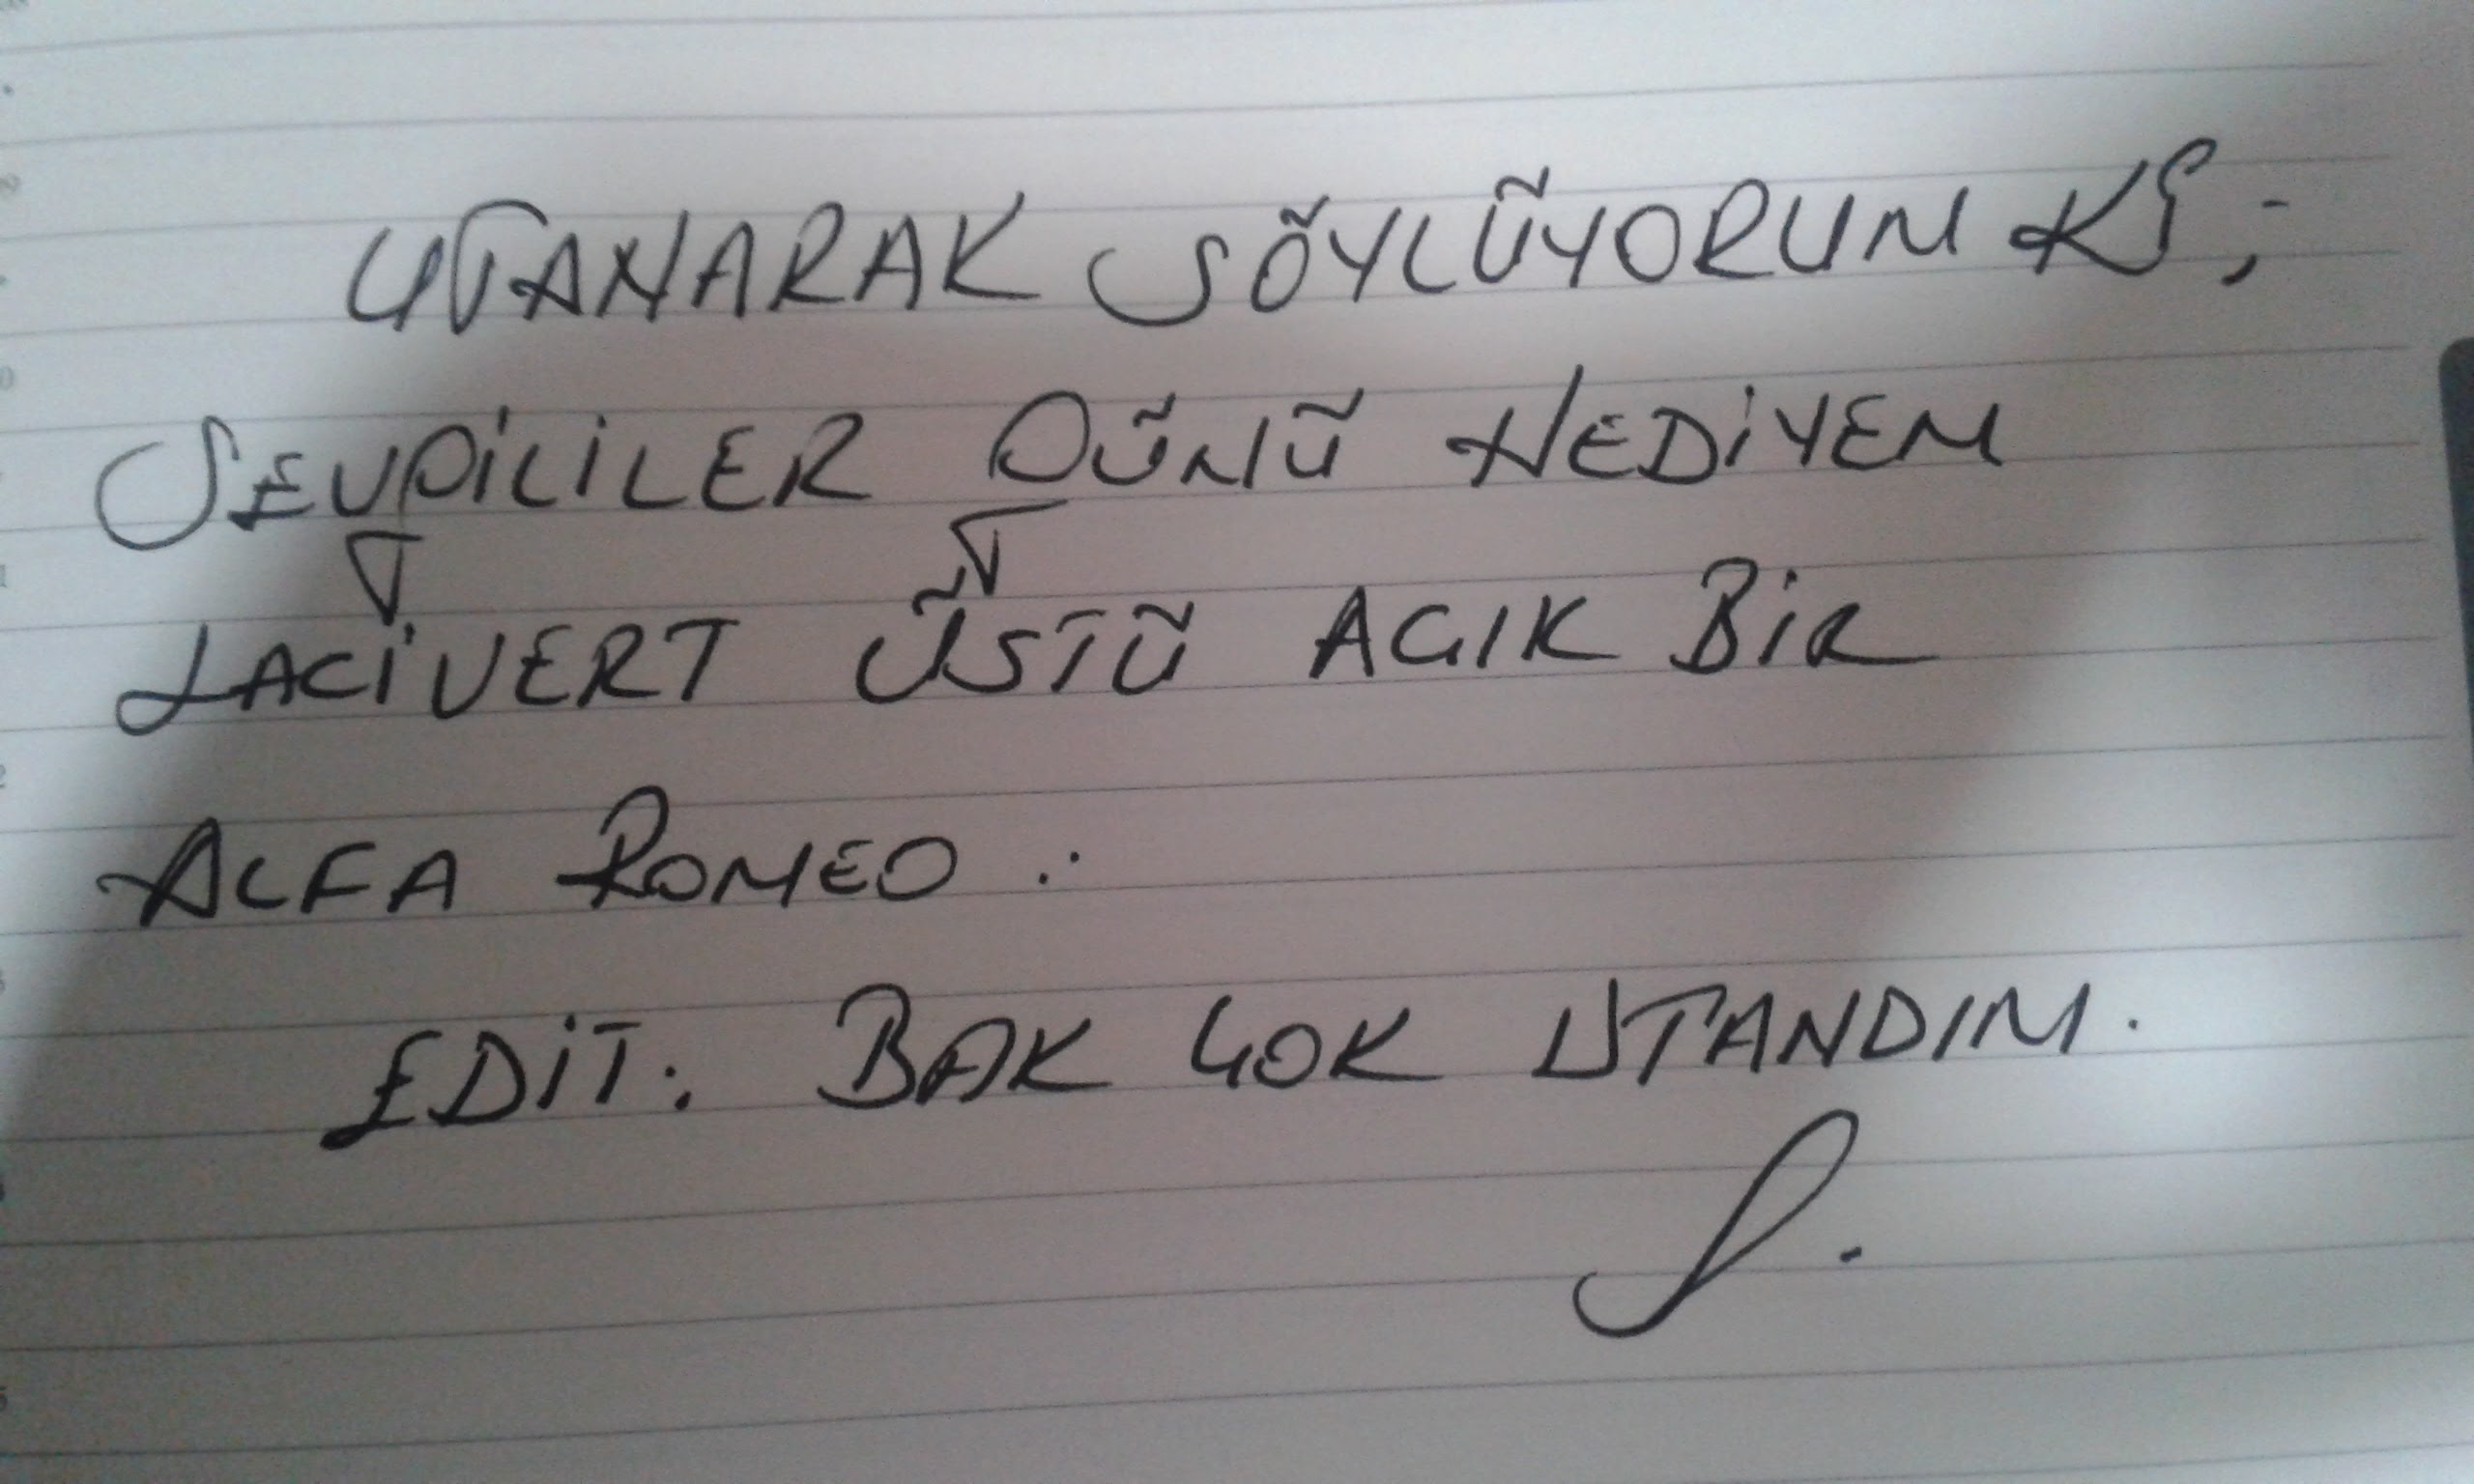 UTANARAK SÖYLÜYORUM Kİ;
SEVGİLİLER GÜNÜ HEDİYEM
LACİVERT ÜSTÜ AÇIK BİR
ALFA ROMEO :
EDİT: BAK ÇOK UTANDIM.
S.